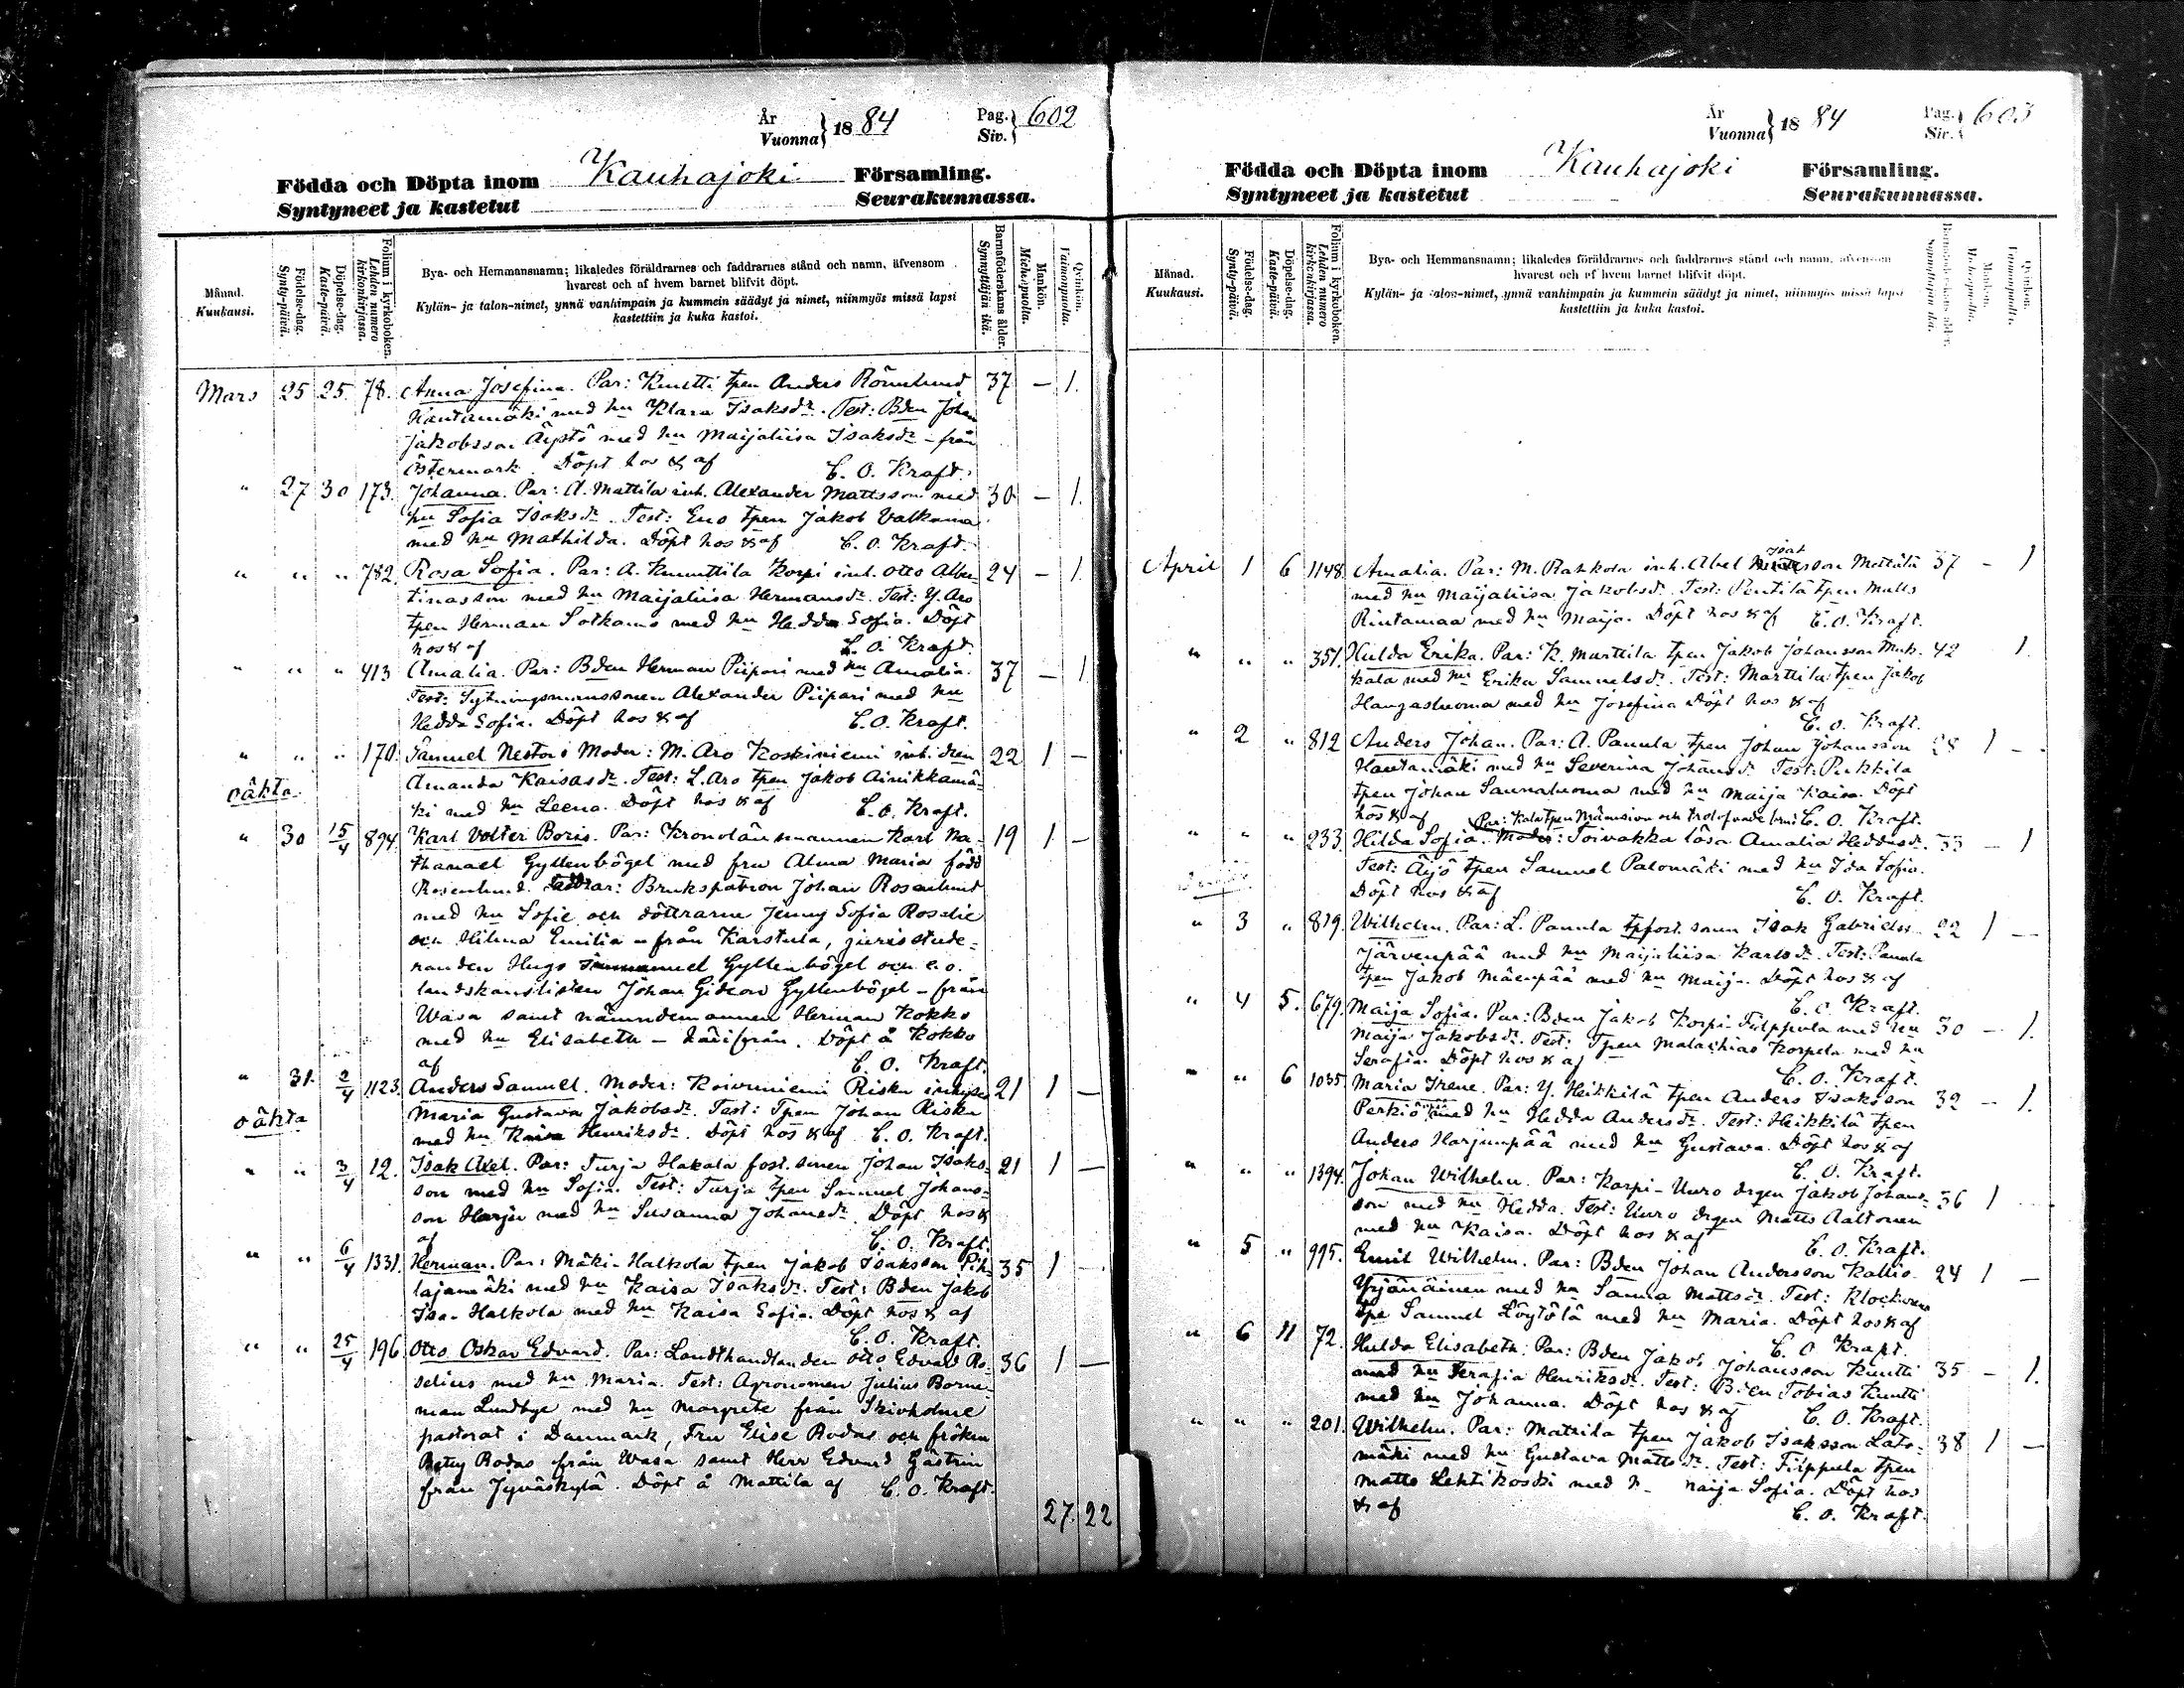 År
Vuonna } 18 84
Pag.
Siv. } 602
Födda och Döpta inom Kauhajoki Församling.
Syntyneet ja kastetut Seurakunnassa.
Månad.
Kuukausi.
Födelse-dag.
Synty-päivä.
Döpelse-dag.
Kaste-päivä.
Folium i kyrkoboken.
Lehden numero
kirkonkirjassa.
Bya- och Hemmansnamn; likaledes föräldrarnes och faddrarnes stånd och namn, äfvensom
hvarest och af hvem barnet blifvit döpt.
Kylän- ja talon-nimet, ynnä vanhimpain ja kummein säädyt ja nimet, niinmyös missä lapsi
kastettiin ja kuka kastoi.
Barnaföderskans ålder.
Synnyttäjän ikä.
Mankön.
Miehenpuolta.
Qvinkön.
Vaimonpuolta.
Mars 25 25 78. Anna Josefina. Par: Knutti tpen Anders Rönnlund 37 — 1.
Hautamäki med hu Klara Isaksdr. Test: Bden Johan
Jakobsson Äystö med hu Maijaliisa Isaksdr – från
Östermark. Döpt hos & af C. O. Kraft.
" 27 30 173. Johanna. Par: A. Mattila inh. Alexander Mattsson med 30 — 1.
hu Sofia Isaksdr. Test: Eno tpen Jakob Valkama
med hu Mathilda. Döpt hos & af C. O. Kraft.
" " " 782. Rosa Sofia. Par: A. Knuuttila Korpi inh. Otto Alber- 24 — 1.
tinasson med hu Maijaliisa Hermansdr. Test: Y. Aro
tpen Herman Sotkamo med hu Hedda Sofia. Döpt
hos & af C. O. Kraft.
" " " 413 Amalia. Par: Bden Herman Piipari med hu Amalia. 37 — 1
Test: Sytningsmanssonen Alexander Piipari med hu
Hedda Sofia. Döpt hos & af C. O. Kraft.
" " " 170. Samuel Nestor. Moder: M. Aro Koskiniemi inh. dren 22 1 —
oäkta Amanda Kaisasdr. Test: L. Aro tpen Jakob Ainikkamä-
ki med hu Leena. Döpt hos & af C. O. Kraft.
" 30 15/4 894. Karl Volter Boris. Par: Kronolänsmannen Karl Na- 19 1 —
thanael Gyllenbögel med fru Alma Maria född
Rosenlund. Faddrar: Brukspatron Johan Rosenlund
med hu Sofie och döttrarne Jenny Sofia Rosalie
och Hilma Emilia – från Karstula, juris stude-
randen Hugo Immanuel Gyllenbögel och e. o.
landskanslisten Johan Gideon Gyllenbögel – från
Wasa samt nämndemannen Herman Kokko
med hu Elisabeth – härifrån. Döpt å Kokko
af C. O. Kraft.
" 31. 2/4 1123. Anders Samuel. Moder: Koivuniemi Risku inhyses 21 1 —
oäkta Maria Gustava Jakobsdr. Test: Tpen Johan Risku
med hu Kaisa Henriksdr. Döpt hos & af C. O. Kraft.
" " 3/4 12. Isak Axel. Par: Turja Hakala fost. sonen Johan Isaks- 21 1 —
son med hu Sofia. Test: Turja tpen Samuel Johans-
son Harju med hu Susanna Johansdr. Döpt hos &
af C. O. Kraft.
" " 6/4 1331. Herman. Par: Mäki-Halkola tpen Jakob Isaksson Pih- 35 1 —
lajamäki med hu Kaisa Isaksdr. Test: Bden Jakob
Iso-Halkola med hu Kaisa Sofia. Döpt hos & af
C. O. Kraft.
" " 25/4 196. Otto Oskar Edvard. Par: Landthandlanden Otto Edvard Ro- 36 1 —
selius med hu Maria. Test: Agronomen Julius Borne-
man Lundbye med hu Margrete från Skivholme
pastorat i Danmark, Fru Elise Rodas och fröken
Betsy Rodas från Wasa samt Herr Edvard Gästrin
från Jyväskylä. Döpt å Mattila af C. O. Kraft.
27. 22
År
Vuonna } 18 84
Pag.
Siv. } 603
Födda och Döpta inom Kauhajoki Församling.
Syntyneet ja kastetut Seurakunnassa.
Månad.
Kuukausi.
Födelse-dag.
Synty-päivä.
Döpelse-dag.
Kaste-päivä.
Folium i kyrkoboken.
Lehden numero
kirkonkirjassa.
Bya- och Hemmansnamn; likaledes föräldrarnes och faddrarnes stånd och namn, äfvensom
hvarest och af hvem barnet blifvit döpt.
Kylän- ja talon-nimet, ynnä vanhimpain ja kummein säädyt ja nimet, niinmyös missä lapsi
kastettiin ja kuka kastoi.
Barnaföderskans ålder.
Synnyttäjän ikä.
Mankön.
Miehenpuolta.
Qvinkön.
Vaimonpuolta.
April 1 6 1148 Amalia. Par: M. Rahkola inh. Abel sson Mattila 37 – 1
med hu Maijaliisa Jakobsdr. Test: Pentilä tpen Matts
Rintamaa med hu Maija. Döpt hos & af C. O. Kraft.
" " " 351. Hulda Erika. Par: K. Marttila tpen Jakob Johansson 42 1.
kala med hu Erika Samuelsdr. Test: Marttila tpen Jakob
Hangasluoma med hu Josefina Döpt hos & af
C. O. Kraft.
" 2 " 812 Anders Johan. Par: A. Panula tpen Johan Johansson 28 1 –
Hautamäki med hu Severina Johansdr. Test: Pukkila
tpen Johan Sannaluoma med hu Maija Kaisa. Döpt
hos & af C. O. Kraft.
" " " 233. Hilda Sofia. Moder: Toivakka lösa Amalia Heddasdr. 33 — 1
Test: Äijö tpen Samuel Palomäki med hu Ida Sofia.
Döpt hos & af C. O. Kraft.
" 3 " 819. Wilhelm. Par: L. Panula tpfost. sonen Isak Gabrielss. 22 1 —
Järvenpää med hu Maijaliisa Karlsdr. Test: Panula
tpen Jakob Mäenpää med hu Maija. Döpt hos & af
C. O. Kraft.
" 4 5. 679. Maija Sofia. Par: Bden Jakob Korpi-Filppula med hu 30 – 1.
Maija Jakobsdr. Test: Tpen Malachias Korpela med hu
Serafia. Döpt hos & af
C. O. Kraft.
" " 6 1035 Maria Irene. Par: Y. Heikkilä tpen Anders Isaksson 32 – 1.
Perkiö med hu Hedda Andersdr. Test: Heikkilä tpen
Anders Harjunpää med hu Gustava. Döpt hos & af
C. O. Kraft.
" " " 1394. Johan Wilhelm. Par: Karpi-Uuro drgen Jakob Johans- 36 1
son med hu Hedda. Test: Uuro drgen Matts Aaltonen
med hu Kaisa. Döpt hos & af
C. O. Kraft.
" 5 " 995. Emil Wilhelm. Par: Bden Johan Andersson Kallio- 24 1 —
Yrjänäinen med hu Sanna Mattsdr. Test: Klockarens
tpe Samuel Löytölä med hu Maria. Döpt hos & af
C. O. Kraft.
" 6 11 72. Hulda Elisabeth. Par: Bden Jakob Johansson Knutti 35 – 1.
med hu Serafia Henriksdr. Test: Bden Tobias Knutti
med hu Johanna. Döpt hos & af C. O. Kraft.
" " " 201. Wilhelm. Par: Mattila tpen Jakob Isaksson Lato- 38 1 —
mäki med hu Gustava Mattsdr. Test: Filppula tpen
Matts Lehtikoski med h Maija Sofia. Döpt hos
& af C. O. Kraft.